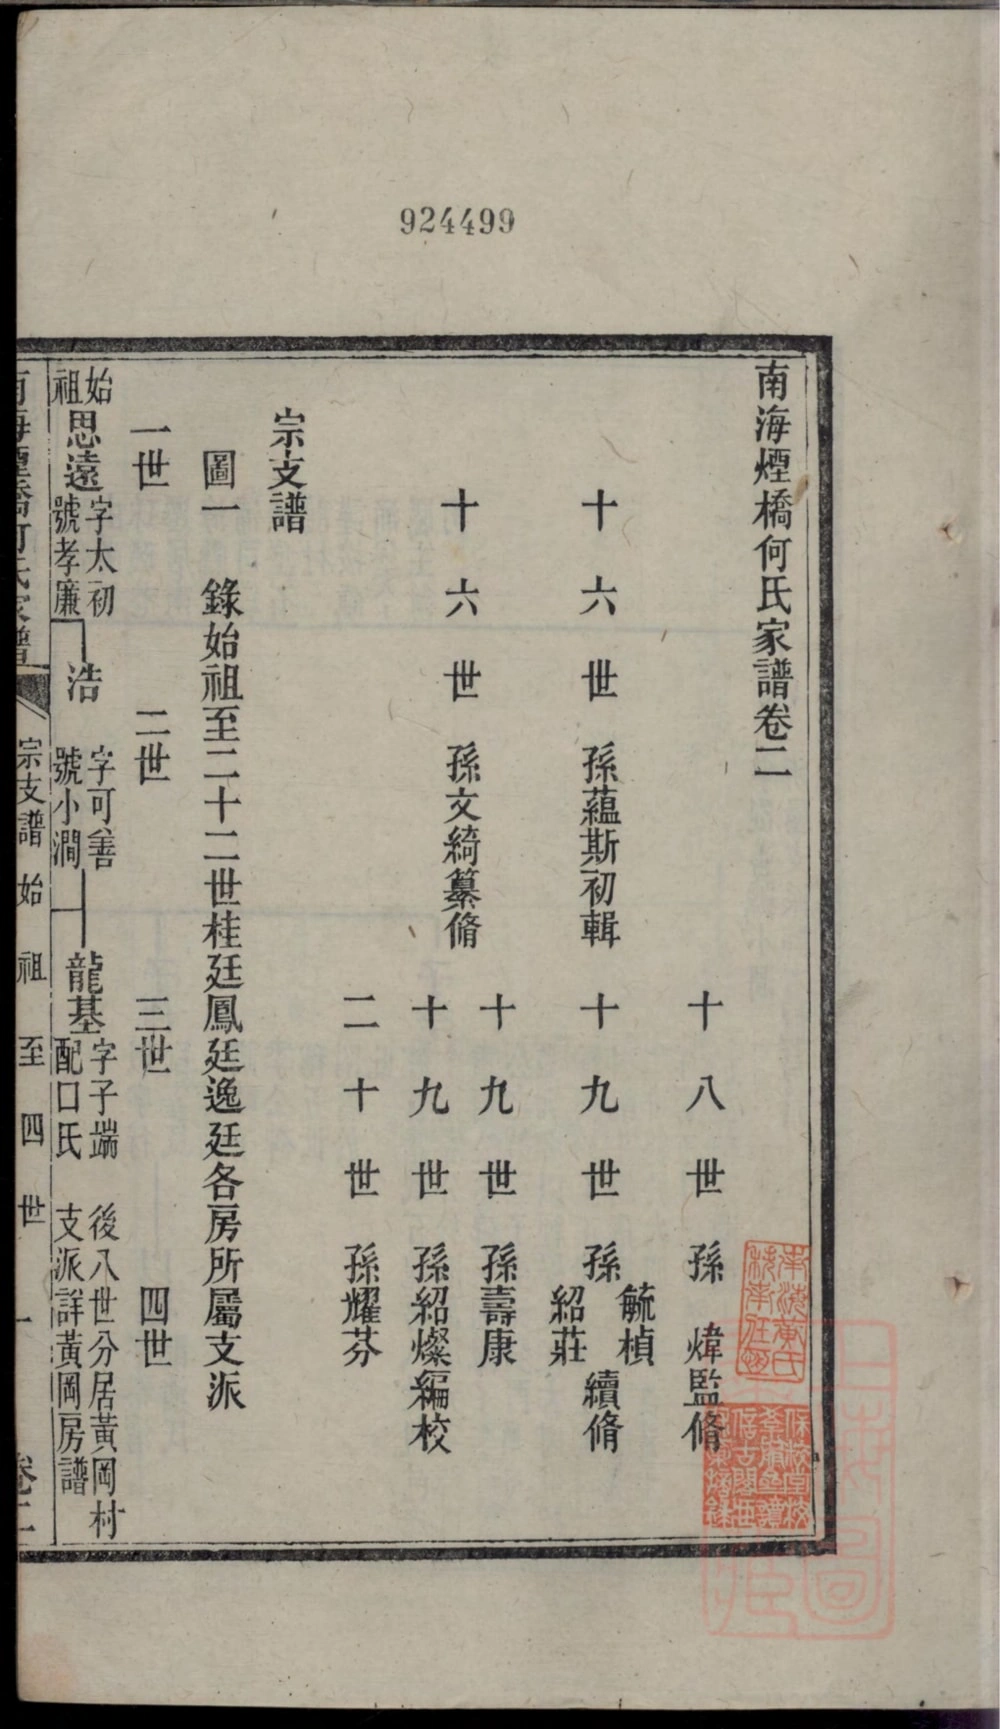 924499
南海煙橋何氏家譜卷二
十八世孫 煒監脩
十六世孫蘊斯初輯 十九世孫毓楨紹莊續脩
十六世孫文綺纂脩 十九世孫壽康
十九世孫紹燦編校
二十世孫耀芬
宗支譜
圖一 錄始祖至二十二世桂廷鳳廷逸廷各房所屬支派
一世 二世 三世 四世
始祖思遠字太初號孝廉 浩 字可善號小澗 龍基字子端配口氏 後八世分居黃岡村支派詳黃岡房譜
南海煙橋何氏家譜 宗支譜 始祖至四世 一 卷二